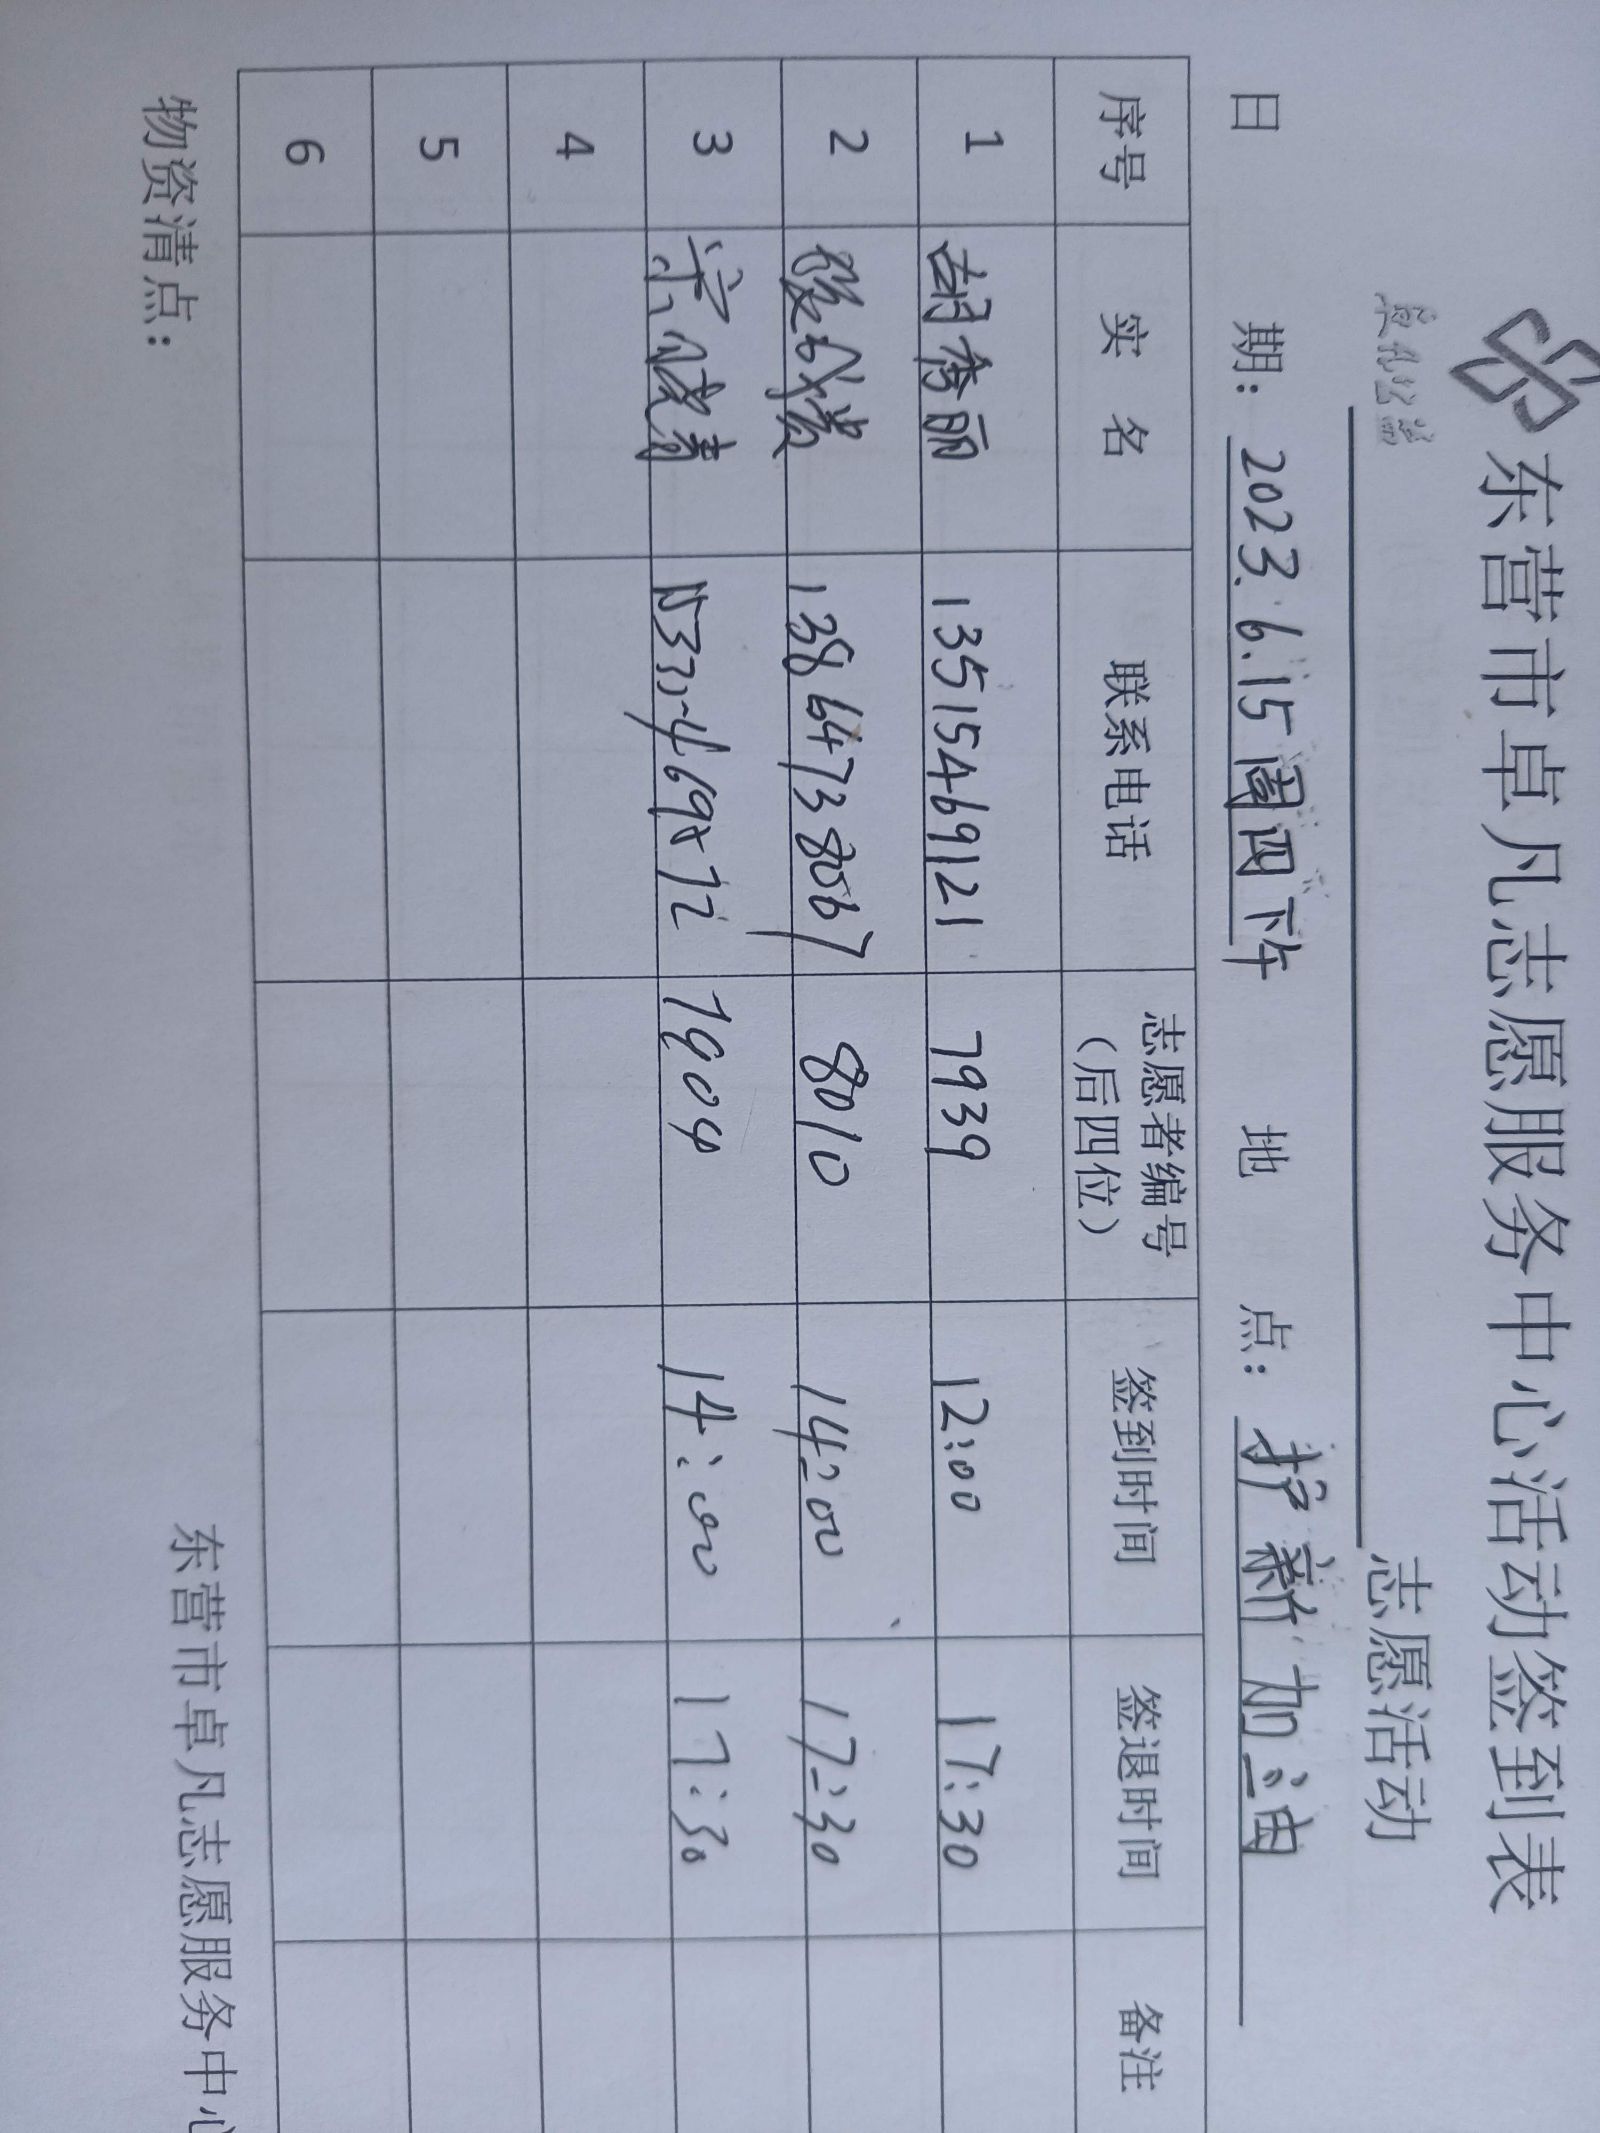 东营市卓凡志愿服务中心活动签到表
卓凡公益
志愿活动
日 期：2023.6.15周四下午 地 点：护新加油
序号 实 名 联系电话 志愿者编号（后四位） 签到时间 签退时间 备注
1 胡秀丽 13515469121 7939 12:00 17:30
2 13864738067 8010 14:00 17:30
3 7904 14:00 17:30
4
5
6
物资清点：
东营市卓凡志愿服务中心